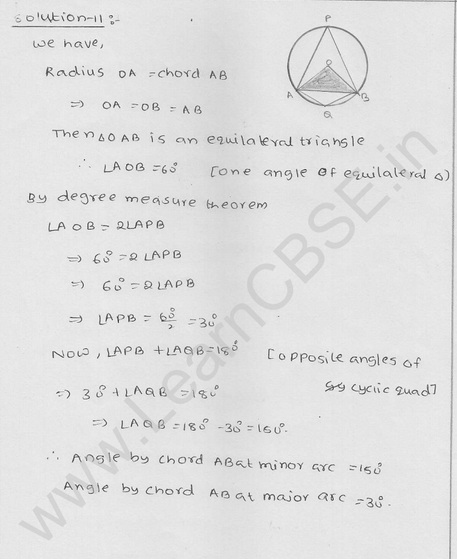 Solution-11:-
P
We have,
Radius OA = chord AB
O
⇒ OA = OB = AB
A
B
Q
Then △OAB is an equilateral triangle
∴ ∠AOB = 60° [one angle of equilateral △]
By degree measure theorem
∠AOB = 2∠APB
⇒ 60° = 2∠APB
⇒ 60° = 2∠APB
⇒ ∠APB = 60°/2 = 30°
Now, ∠APB + ∠AQB = 180° [opposite angles of
cyclic quad]
⇒ 30° + ∠AQB = 180°
⇒ ∠AQB = 180° - 30° = 150°.
∴ Angle by chord AB at minor arc = 150°
Angle by chord AB at major arc = 30°.
www.LearnCBSE.in